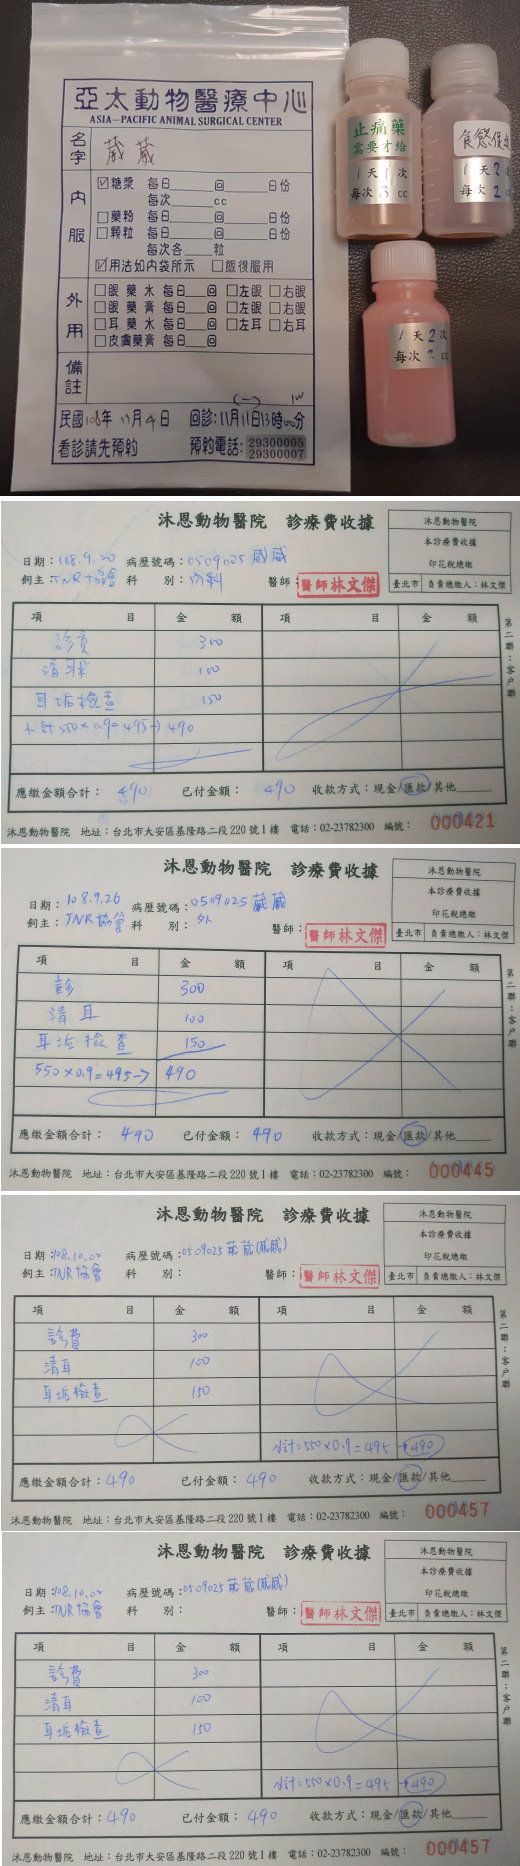 亞太動物醫療中心
ASIA-PACIFIC ANIMAL SURGICAL CENTER
名字 葳葳
內服
☑糖漿 每日____回____日份
每次____cc
□藥粉 每日____回____日份
□顆粒 每日____回____日份
每次各____粒
☑用法如內袋所示 □飯後服用
外用
□眼藥水 每日__回 □左眼 □右眼
□眼藥膏 每日__回 □左眼 □右眼
□耳藥水 每日__回 □左耳 □右耳
□皮膚藥膏 每日__回
備註
(一) 1W
民國108年11月4日 回診:11月11日13時00分
看診請先預約 預約電話:29300005
29300007
止痛藥
需要才給
1天1次
每次3cc
食慾促
1天2次
每次2cc
1天2次
每次 cc
沐恩動物醫院 診療費收據
沐恩動物醫院
本診療費收據
印花稅總繳
臺北市 負責總繳人:林文傑
日期:108.9.20 病歷號碼:0509025 威威
飼主:TNR協會 科別:內科 醫師:醫師林文傑
項目 金額 項目 金額
診費 300
清耳 100
耳垢檢查 150
小計550×0.9=495→490
應繳金額合計:490 已付金額:490 收款方式:現金/匯款/其他____
第二聯:客戶聯
沐恩動物醫院 地址:台北市大安區基隆路二段220號1樓 電話:02-23782300 編號:000421
沐恩動物醫院 診療費收據
沐恩動物醫院
本診療費收據
印花稅總繳
臺北市 負責總繳人:林文傑
日期:108.9.26 病歷號碼:0509025 葳葳
飼主:TNR協會 科別:外 醫師:醫師林文傑
項目 金額 項目 金額
診 300
清耳 100
耳垢檢查 150
550×0.9=495→490
應繳金額合計:490 已付金額:490 收款方式:現金/匯款/其他____
第二聯:客戶聯
沐恩動物醫院 地址:台北市大安區基隆路二段220號1樓 電話:02-23782300 編號:000445
沐恩動物醫院 診療費收據
沐恩動物醫院
本診療費收據
印花稅總繳
臺北市 負責總繳人:林文傑
日期:108.10.02 病歷號碼:0509025 葳葳(威威)
飼主:TNR協會 科別: 醫師:醫師林文傑
項目 金額 項目 金額
診費 300
清耳 100
耳垢檢查 150
小計=550×0.9=495→490
應繳金額合計:490 已付金額:490 收款方式:現金/匯款/其他____
第二聯:客戶聯
沐恩動物醫院 地址:台北市大安區基隆路二段220號1樓 電話:02-23782300 編號:000457
沐恩動物醫院 診療費收據
沐恩動物醫院
本診療費收據
印花稅總繳
臺北市 負責總繳人:林文傑
日期:108.10.02 病歷號碼:0509025 葳葳(威威)
飼主:TNR協會 科別: 醫師:醫師林文傑
項目 金額 項目 金額
診費 300
清耳 100
耳垢檢查 150
小計=550×0.9=495→490
應繳金額合計:490 已付金額:490 收款方式:現金/匯款/其他____
第二聯:客戶聯
沐恩動物醫院 地址:台北市大安區基隆路二段220號1樓 電話:02-23782300 編號:000457